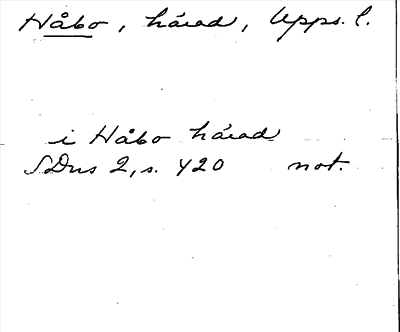 Håbo, härad, Upps. l.
i Håbo härad
SDns 2, s. 420 not.